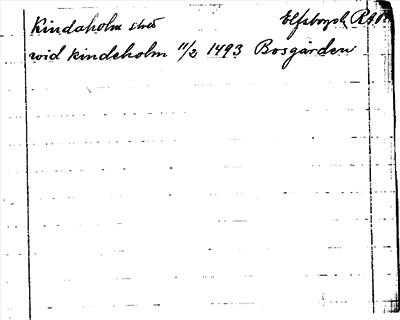 Kindaholm slott Elfsborgs
wid kindeholm 11/2 1493 Bosgården